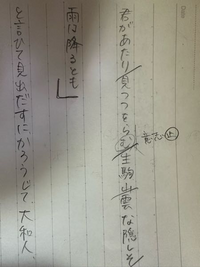 君があたり見つつををらむ生駒山雲な隠しそ
意志 止
雨は降るとも」
と言ひて見出だすに、かろうじて、大和人、